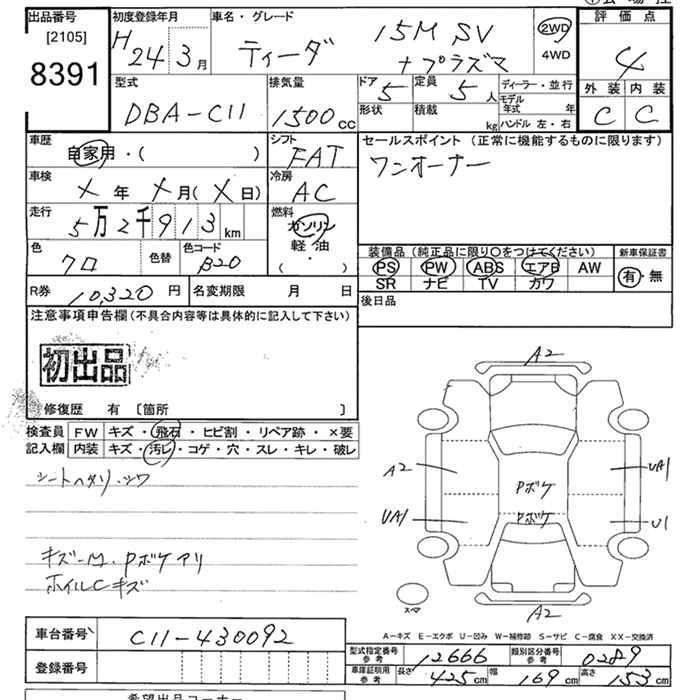 出品番号 初度登録年月 車名・グレード 評価点
[2105] H 24年 3月 ティーダ 15M SV 2WD 4
8391 +プラズマ 4WD
型式 排気量 ドア 5 定員 5人 ディーラー・並行 外装 内装
DBA-C11 1500cc 形状 積載 kg モデル年式 年 C C
ハンドル 左・右
車歴 シフト セールスポイント (正常に機能するものに限ります)
自家用・( ) FAT ワンオーナー
車検 冷房
×年 ×月(×日) AC
走行 燃料
5万2千913km ガソリン
色 色替 色コード 軽油 装備品 (純正品に限り○をつけてください) 新車保証書
クロ B20 (・) PS PW ABS エアB AW 有・無
SR ナビ TV カワ
R券 10,320円 名変期限 月 日 後日品
注意事項申告欄(不具合内容等は具体的に記入して下さい)
初出品
修復歴 有 [箇所 ]
検査員 FW キズ・飛石・ヒビ割・リペア跡・×要
記入欄 内装 キズ・汚レ・コゲ・穴・スレ・キレ・破レ
シートヘタリ・シワ
キズ-M. Pボケアリ
ホイルCキズ
A2
A2 UA1
Pボケ
UA1 Pボケ U1
スマ
A2
A-キズ E-エクボ U-凹み W-補修跡 S-サビ C-腐食 XX-交換済
車台番号 C11-430092
型式指定番号 参考 12666 類別区分番号 参考 0289
登録番号 車庫証明用 参考 長さ 425cm 幅 169cm 高さ 153cm
希望出品コーナー